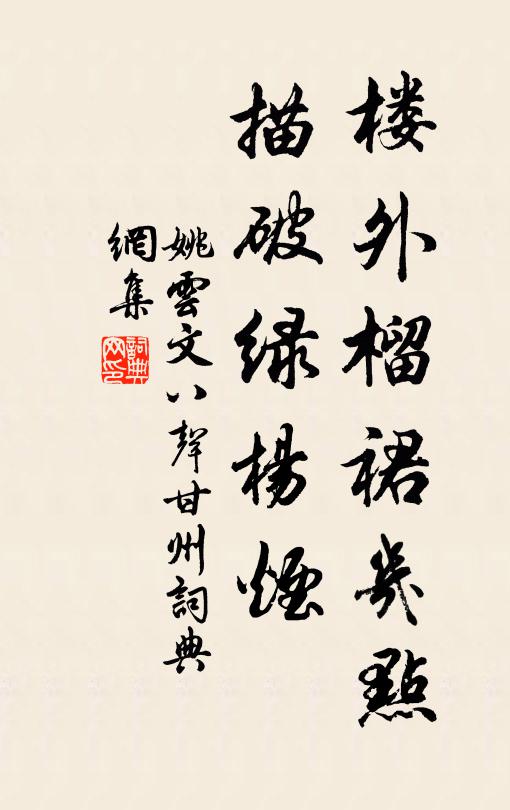 楼外榴裙幾點
描破绿楊煙
姚雲文八聲甘州詞典
網集
詞典網印